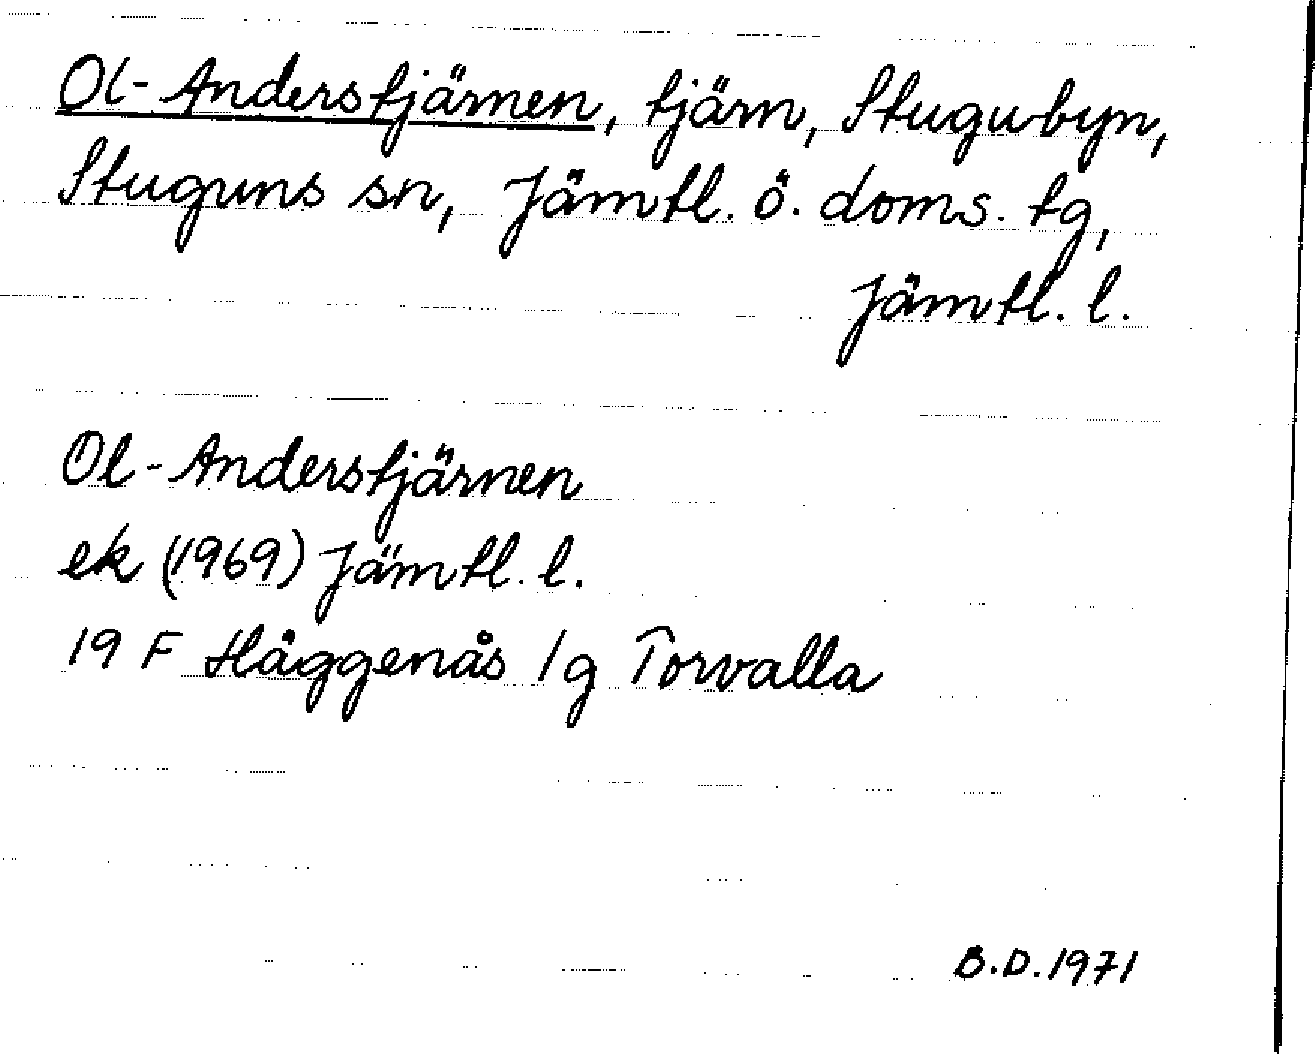 Ol-Anderstjärnen, tjärn, Stugubyn,
Stuguns sn, Jämtl. ö. doms. tg,
Jämtl. l.
Ol-Anderstjärnen
ek (1969) Jämtl. l.
19 F Häggenås 1g Torvalla
B.D. 1971